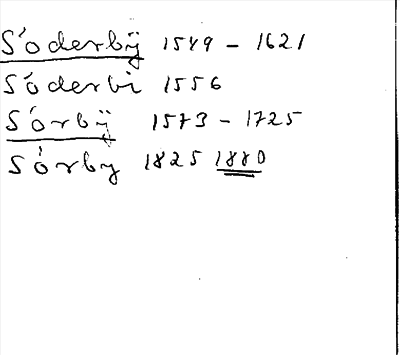 Söderbÿ 1549 - 1621
Söderbi 1556
Sörbÿ 1573 - 1725
Sörby 1825 1880